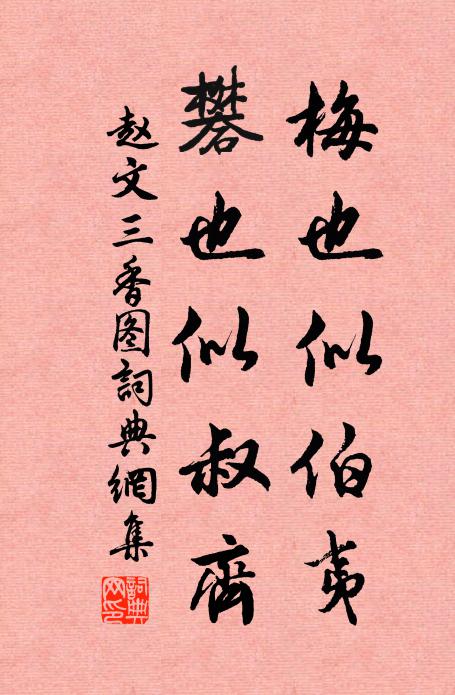 梅也似伯夷
礬也似叔齊
赵文三香图詞典網集
詞典网印